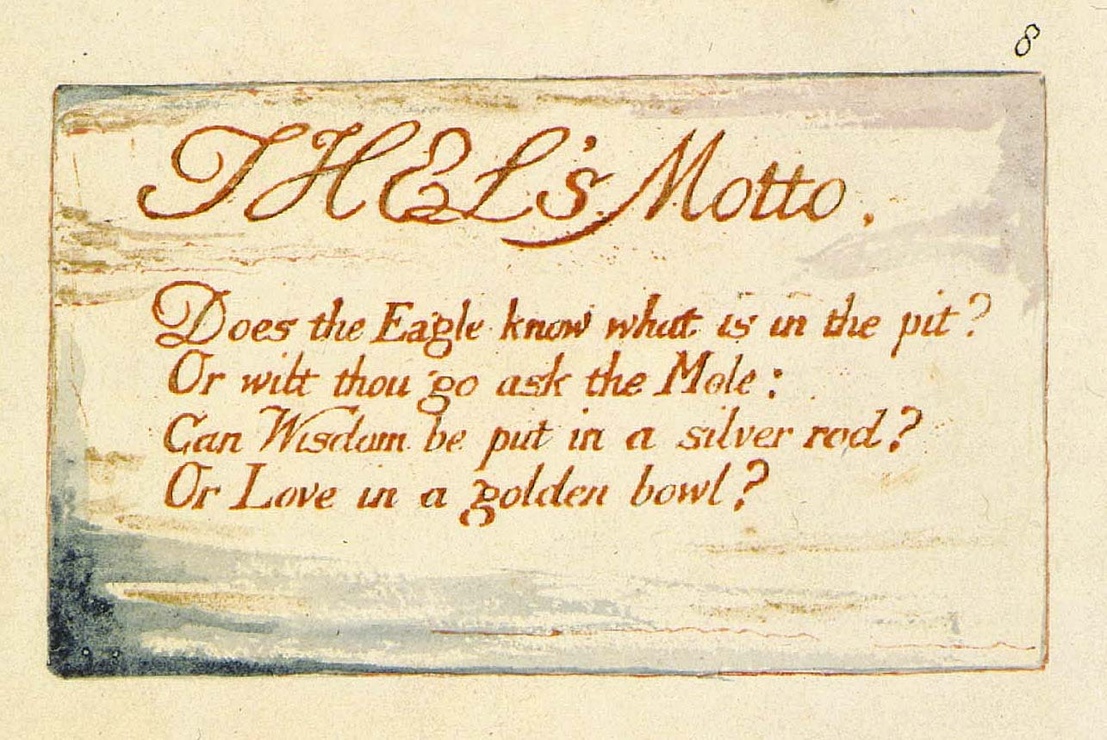 8
THEL's Motto.
Does the Eagle know what is in the pit?
Or wilt thou go ask the Mole:
Can Wisdom be put in a silver rod?
Or Love in a golden bowl?